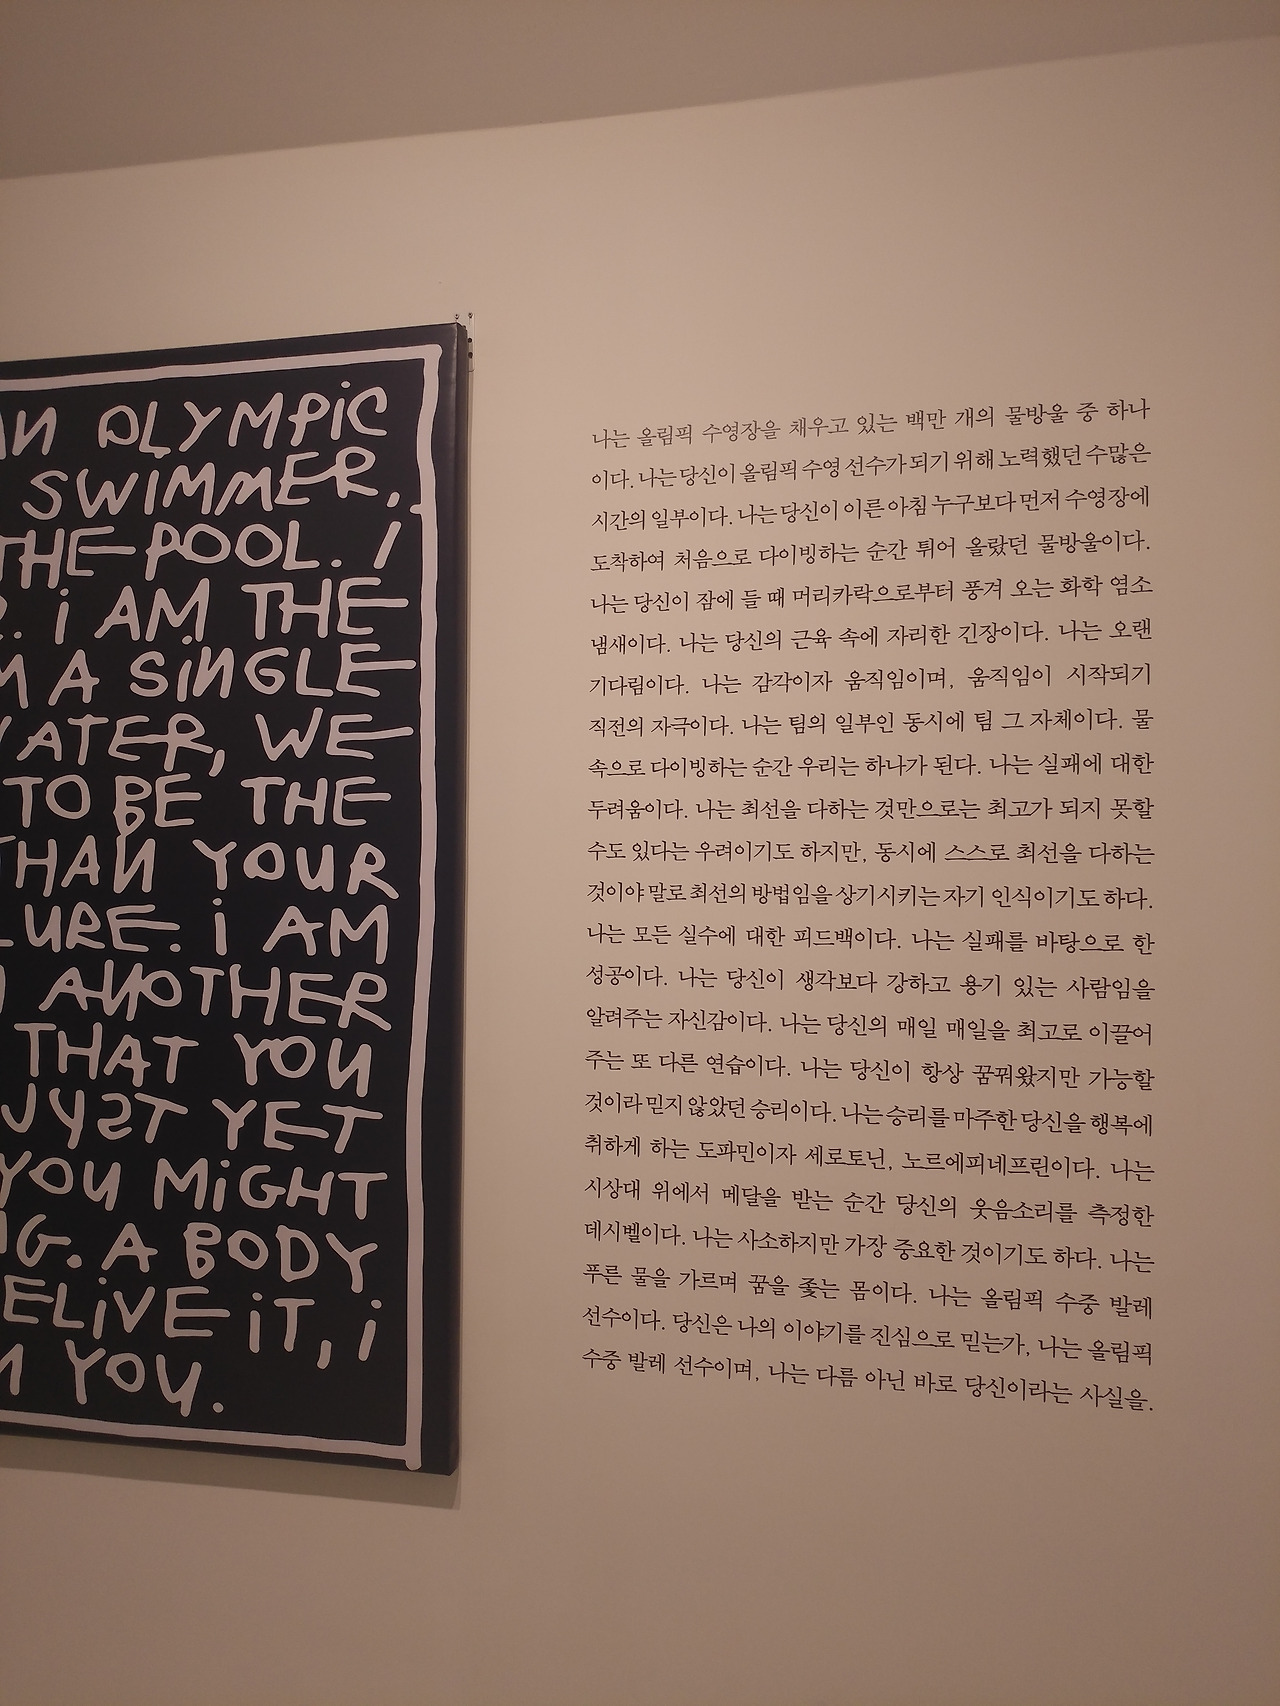 AN OLYMPIC
SWIMMER,
THE POOL. I
. i AM THE
M A SINGLE
WATER, WE
TO BE THE
THAN YOUR
LURE. i AM
ANOTHER
THAT YOU
JUST YET
YOU MiGHT
G. A BODY
ELiVE iT, i
YOU.
나는 올림픽 수영장을 채우고 있는 백만 개의 물방울 중 하나
이다. 나는 당신이 올림픽 수영 선수가 되기 위해 노력했던 수많은
시간의 일부이다. 나는 당신이 이른 아침 누구보다 먼저 수영장에
도착하여 처음으로 다이빙하는 순간 튀어 올랐던 물방울이다.
나는 당신이 잠에 들 때 머리카락으로부터 풍겨 오는 화학 염소
냄새이다. 나는 당신의 근육 속에 자리한 긴장이다. 나는 오랜
기다림이다. 나는 감각이자 움직임이며, 움직임이 시작되기
직전의 자극이다. 나는 팀의 일부인 동시에 팀 그 자체이다. 물
속으로 다이빙하는 순간 우리는 하나가 된다. 나는 실패에 대한
두려움이다. 나는 최선을 다하는 것만으로는 최고가 되지 못할
수도 있다는 우려이기도 하지만, 동시에 스스로 최선을 다하는
것이야 말로 최선의 방법임을 상기시키는 자기 인식이기도 하다.
나는 모든 실수에 대한 피드백이다. 나는 실패를 바탕으로 한
성공이다. 나는 당신이 생각보다 강하고 용기 있는 사람임을
알려주는 자신감이다. 나는 당신의 매일 매일을 최고로 이끌어
주는 또 다른 연습이다. 나는 당신이 항상 꿈꿔왔지만 가능할
것이라 믿지 않았던 승리이다. 나는 승리를 마주한 당신을 행복에
취하게 하는 도파민이자 세로토닌, 노르에피네프린이다. 나는
시상대 위에서 메달을 받는 순간 당신의 웃음소리를 측정한
데시벨이다. 나는 사소하지만 가장 중요한 것이기도 하다. 나는
푸른 물을 가르며 꿈을 좇는 몸이다. 나는 올림픽 수중 발레
선수이다. 당신은 나의 이야기를 진심으로 믿는가, 나는 올림픽
수중 발레 선수이며, 나는 다름 아닌 바로 당신이라는 사실을.